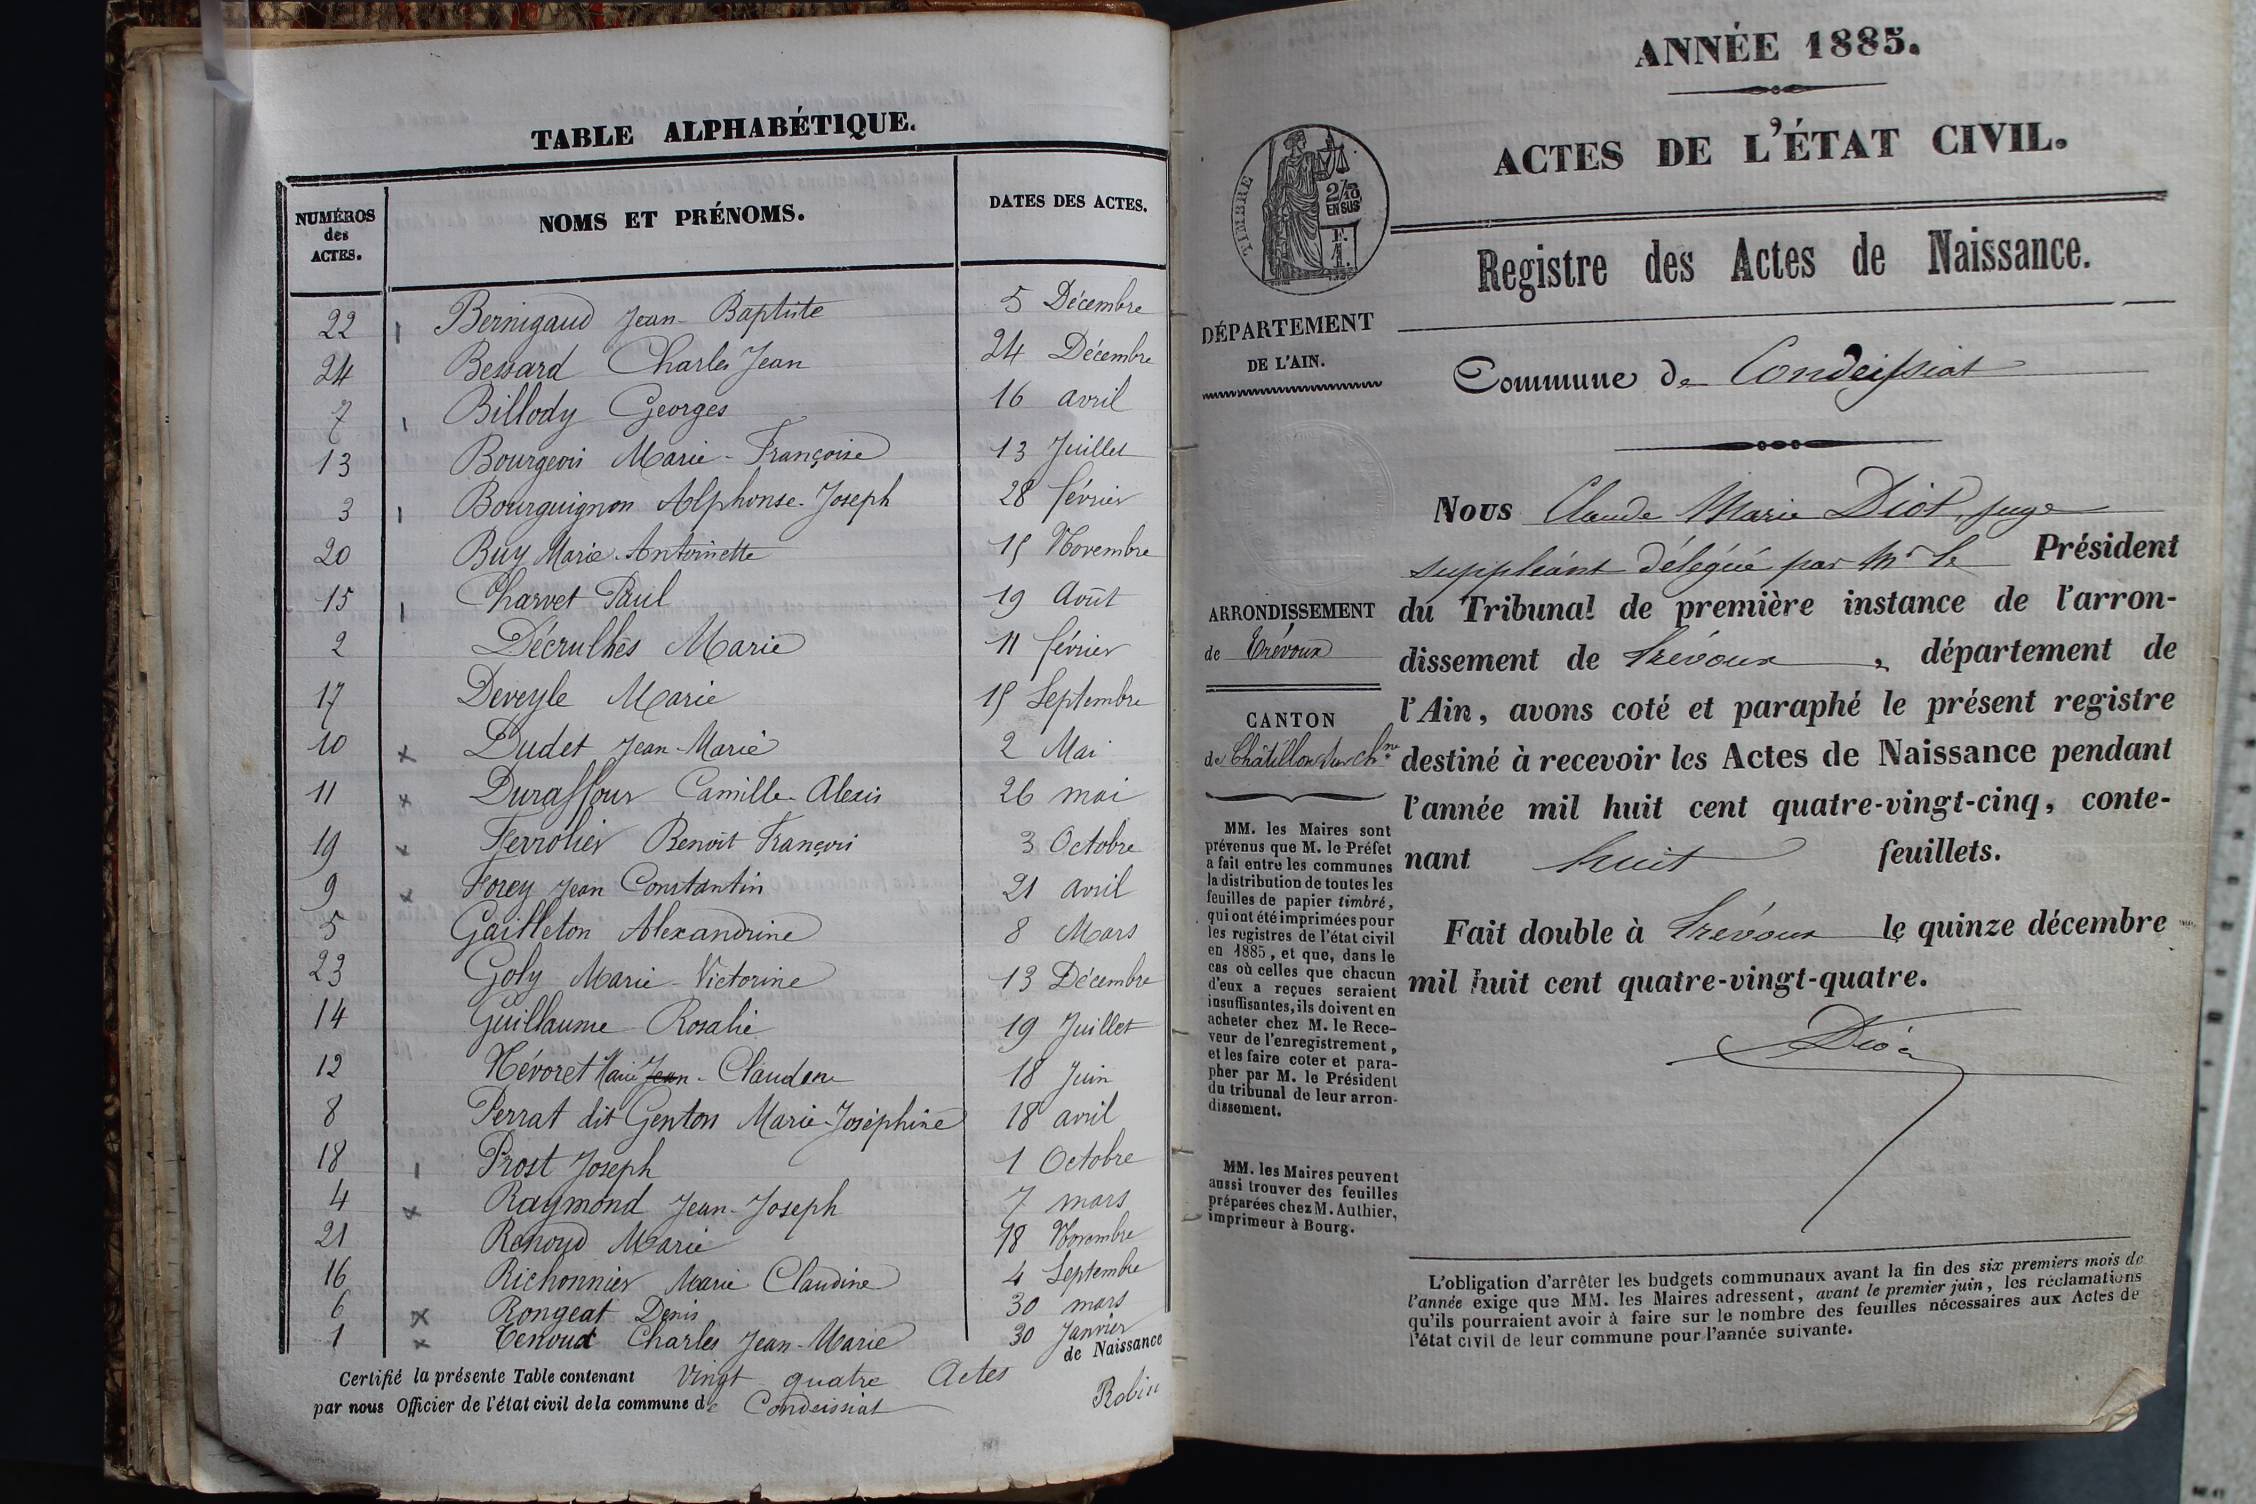 TABLE ALPHABÉTIQUE.
NUMÉROS des ACTES. NOMS ET PRÉNOMS. DATES DES ACTES.
22 Bernigaud Jean-Baptiste 5 Décembre
24 Bessard Charles Jean 24 Décembre
7 Billody Georges 16 avril
13 Bourgeois Marie-Françoise 13 Juillet
3 Bourguignon Alphonse-Joseph 28 février
20 Buy Marie-Antoinette 15 Novembre
15 Charvet Paul 19 Août
2 Décrulhes Marie 11 février
17 Deveyle Marie 15 Septembre
10 x Dudet Jean-Marie 2 Mai
11 x Duraffour Camille-Alexis 26 mai
19 x Ferrolier Benoit François 3 Octobre
9 x Forey Jean Constantin 21 avril
5 Gailleton Alexandrine 8 Mars
23 Goly Marie-Victorine 13 Décembre
14 Guillaume Rosalie 19 Juillet
12 Névoret Marie Jean-Claudene 18 Juin
8 Perrat dit Genton Marie-Joséphine 18 avril
18 Prost Joseph 1 Octobre
4 x Raymond Jean-Joseph 7 mars
21 Renoud Marie 18 Novembre
16 Richonnier Marie Claudine 4 Septembre
6 x Rongeat Denis 30 mars
1 x Tenoud Charles Jean-Marie 30 Janvier
de Naissance
Certifié la présente Table contenant Vingt-quatre Actes
par nous Officier de l'état civil de la commune de Condeissiat
Robin
ANNÉE 1885.
ACTES DE L'ÉTAT CIVIL.
TIMBRE
2/10
EN SUS
1 F.
Registre des Actes de Naissance.
DÉPARTEMENT
DE L'AIN.
Commune de Condeissiat
ARRONDISSEMENT
de Trévoux
CANTON
de Châtillon sur Ch.ne
MM. les Maires sont
prévenus que M. le Préfet
a fait entre les communes
la distribution de toutes les
feuilles de papier timbré,
qui ont été imprimées pour
les registres de l'état civil
en 1885, et que, dans le
cas où celles que chacun
d'eux a reçues seraient
insuffisantes, ils doivent en
acheter chez M. le Rece-
veur de l'enregistrement,
et les faire coter et para-
pher par M. le Président
du tribunal de leur arron-
dissement.
MM. les Maires peuvent
aussi trouver des feuilles
préparées chez M. Authier,
imprimeur à Bourg.
Nous Claude Marie Diot, juge
suppléant délégué par Mr le Président
du Tribunal de première instance de l'arron-
dissement de Trévoux, département de
l'Ain, avons coté et paraphé le présent registre
destiné à recevoir les Actes de Naissance pendant
l'année mil huit cent quatre-vingt-cinq, conte-
nant huit feuillets.
Fait double à Trévoux le quinze décembre
mil huit cent quatre-vingt-quatre.
Diot
L'obligation d'arrêter les budgets communaux avant la fin des six premiers mois de
l'année exige que MM. les Maires adressent, avant le premier juin, les réclamations
qu'ils pourraient avoir à faire sur le nombre des feuilles nécessaires aux Actes de
l'état civil de leur commune pour l'année suivante.